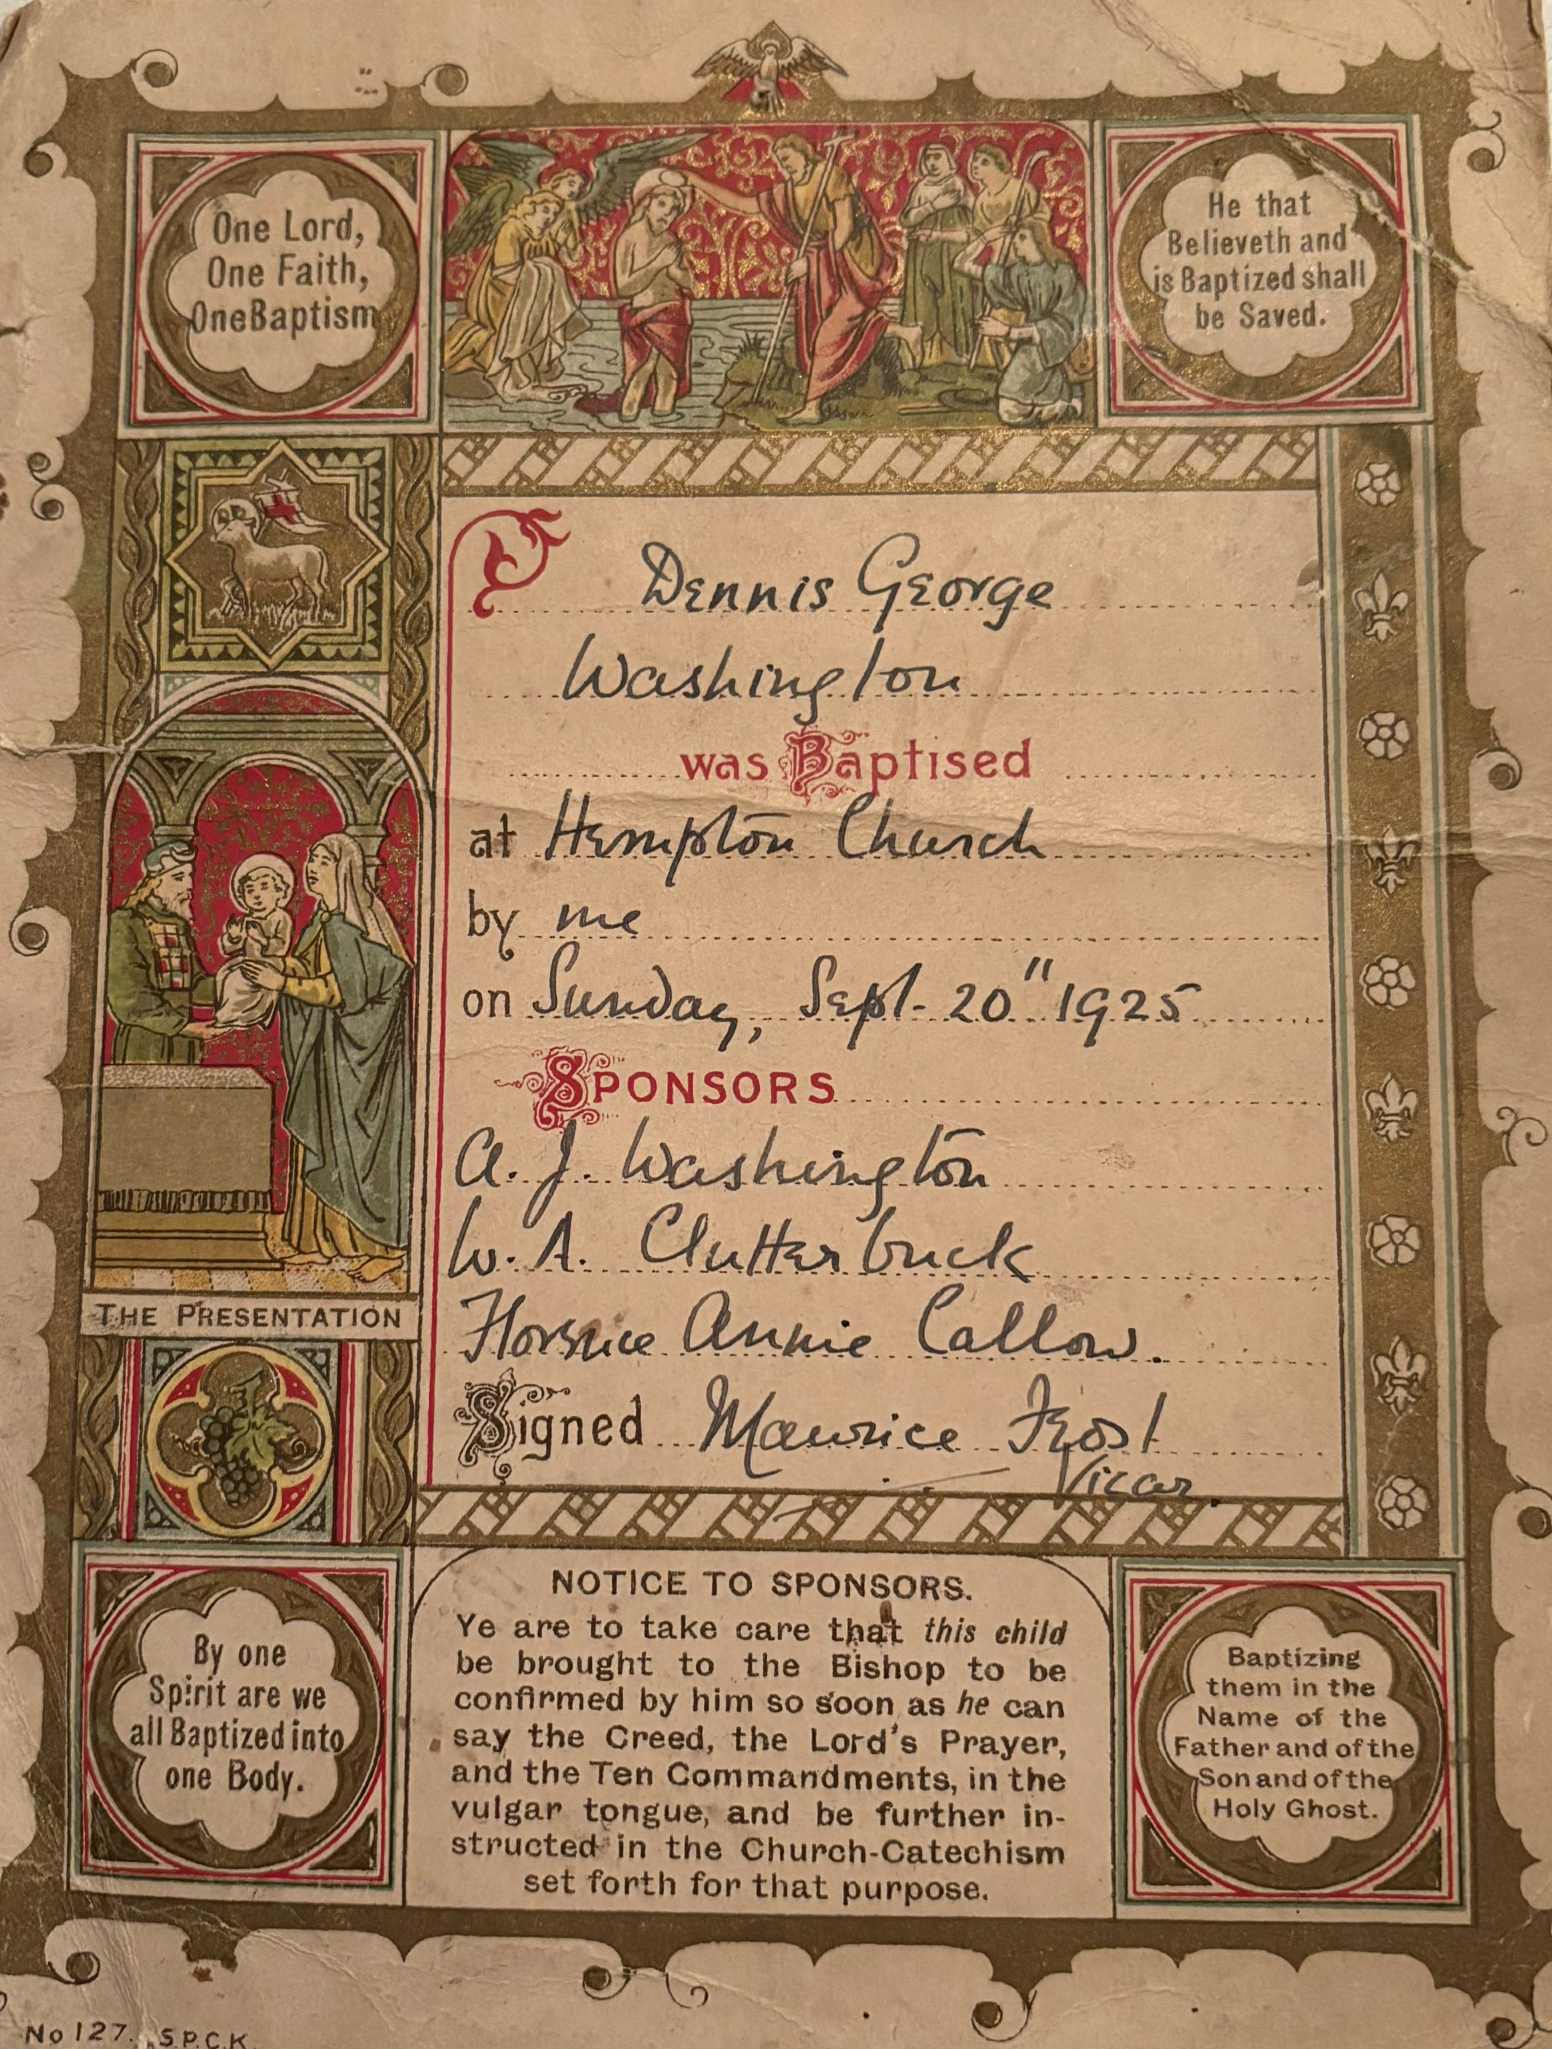 One Lord,
One Faith,
One Baptism
He that
Believeth and
is Baptized shall
be Saved.
Dennis George
Washington
was Baptised
at Hempton Church
by me
on Sunday, Sept. 20" 1925
SPONSORS
A. J. Washington
W. A. Clutterbuck
Florence Annie Callow.
Signed Maurice Frost
Vicar.
THE PRESENTATION
By one
Spirit are we
all Baptized into
one Body.
NOTICE TO SPONSORS.
Ye are to take care that this child
be brought to the Bishop to be
confirmed by him so soon as he can
say the Creed, the Lord's Prayer,
and the Ten Commandments, in the
vulgar tongue, and be further in-
structed in the Church-Catechism
set forth for that purpose.
Baptizing
them in the
Name of the
Father and of the
Son and of the
Holy Ghost.
No 127. S.P.C.K.